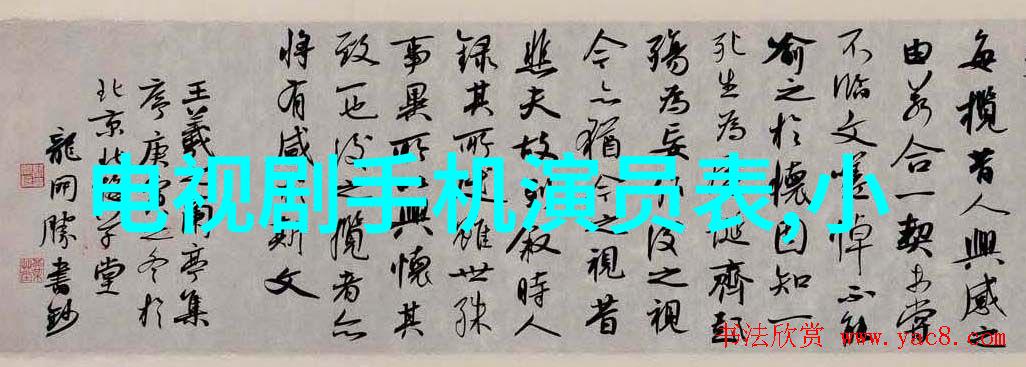 每攬昔人興感之
由若合一契未嘗
不臨文嗟悼不能
喻之於懷固知一
死生為誕齊彭
殤為妄作後之視
今亦猶今之視昔
悲夫故列叙時人
録其所述雖世殊
事異所以興懷其
致一也後之攬者亦
將有感斯文
王羲之蘭亭集
序庚寅之冬於
北京堂
龍開勝書鈔
电视剧手机演员表,小
书法欣赏 www.yac8.com